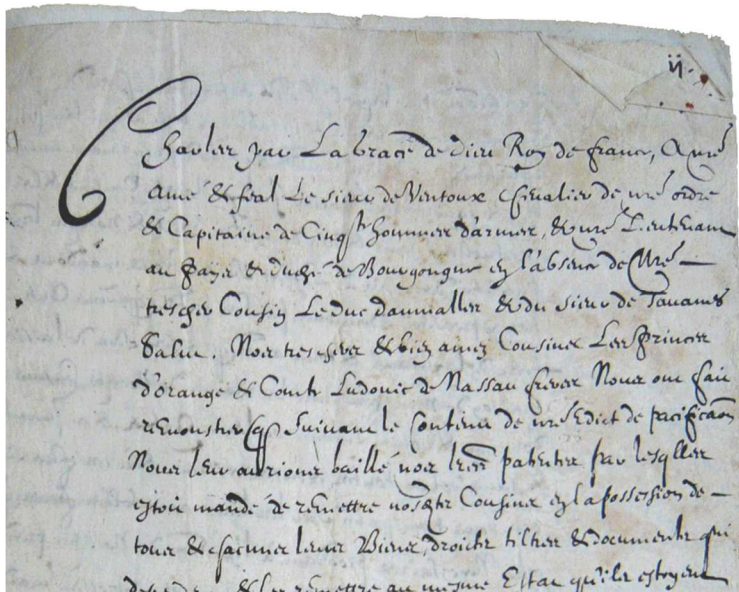 Charles par La Grace de dieu Roy de france, A nre
Amé & feal Le sieur de Ventoux chevalier de nre ordre
& Capitaine de Cinqte hommes d'armes, & nre Lieutenant
au Pays & duché de Bourgongne en l'absence de Nre
trescher Cousin Le duc daumalle & du sieur de Tavanes
Salut. Noz treschers & bien amez Cousins Les Princes
d'orange & Conte Ludovic de Nassau freres Nous ont fait
remonstrer Suivant le Contenu de nre Edict de pacificaon
Nous leur aurions baillé noz lres patentes par lesqlles
estoit mandé de remettre nosdts Cousins en la possession de
tous & chacuns leurs Biens, droits tiltres & documents qui
& les remettre au mesme Estat qu'ils estoyent